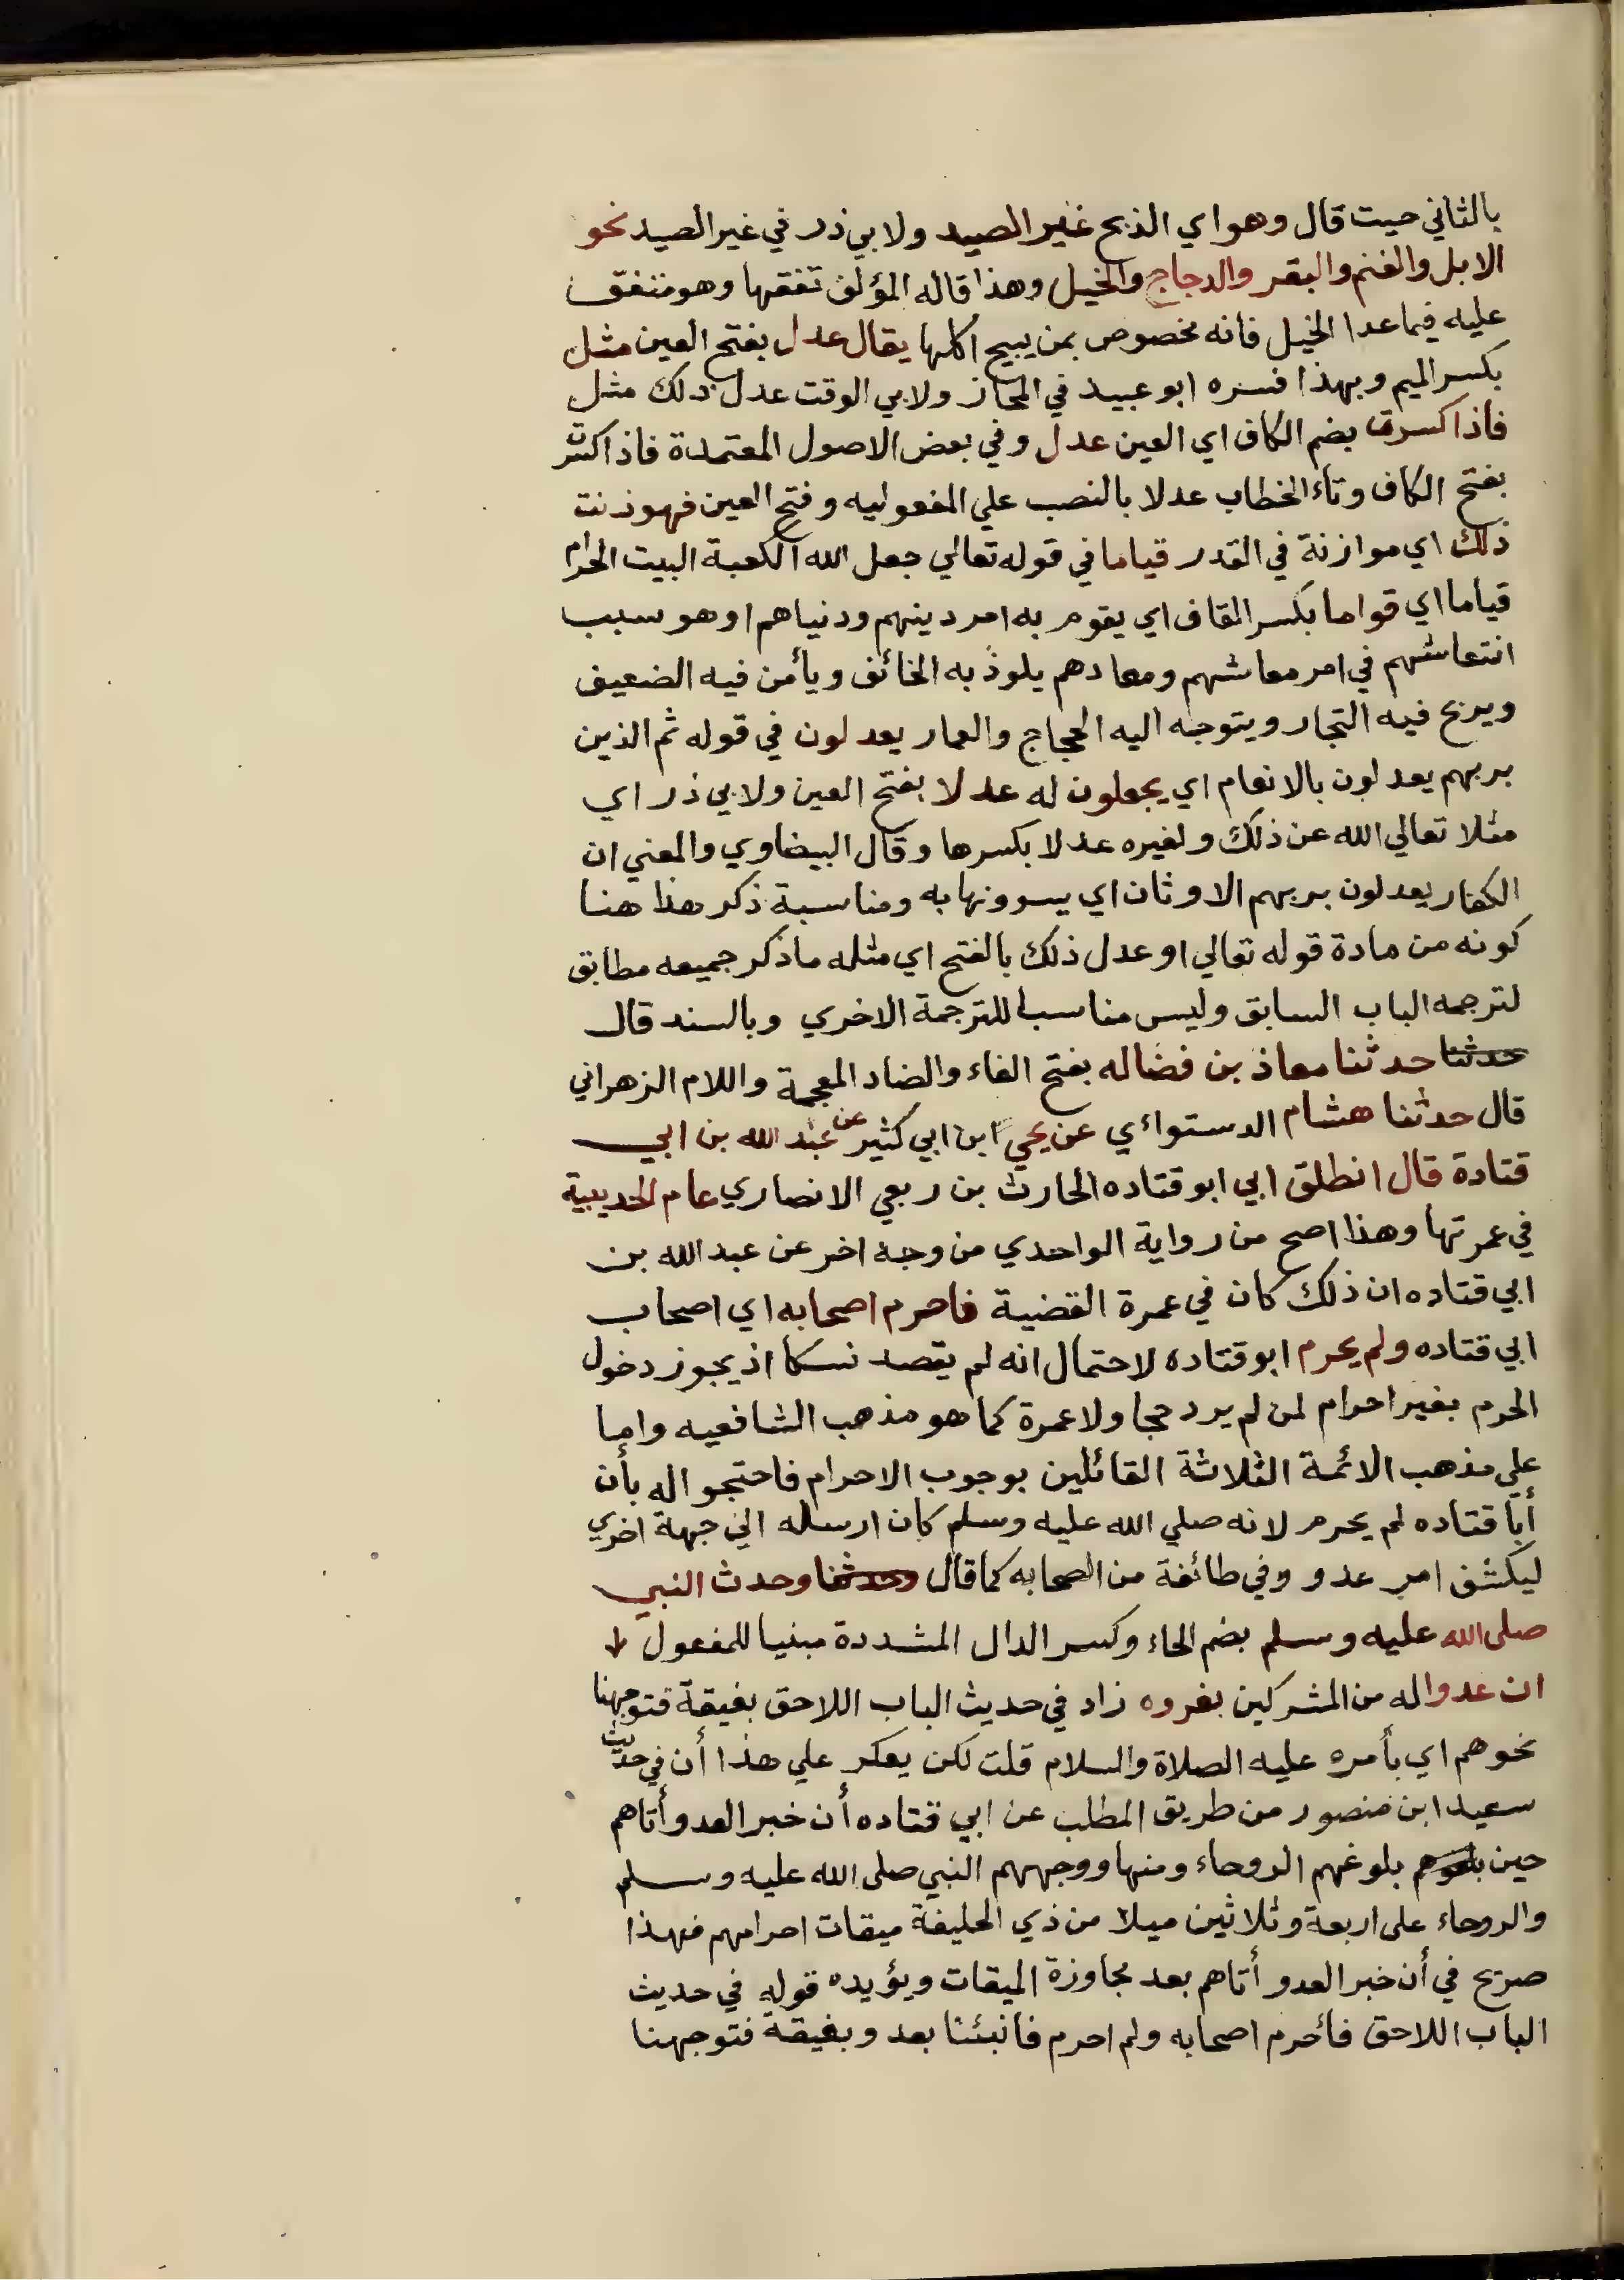 بالثاني حيت قال وهو اي الذبح غير الصيد ولابي ذر في غير الصيد نحو
الابل والغنم والبقر والدجاج والخيل وهذا قاله المؤلف تفقها وهو متفق
عليه فيما عدا الخيل فانه مخصوص بمن يبيح اكلها يقال عدل بفتح العين مثل
بكسر الميم وبهذا فسره ابو عبيد في المجاز ولابي الوقت عدل ذلك مثل
فاذا كسرت بضم الكاف اي العين عدل وفي بعض الاصول المعتمدة فاذا كسرت
بفتح الكاف وتاء الخطاب عدلا بالنصب علي المفعوليه وفتح العين فهو زنت
ذلك اي موازنة في القدر قياما في قوله تعالي جعل الله الكعبة البيت الحرام
قياما اي قواما بكسر القاف اي يقوم به امر دينهم ودنياهم او هو سبب
انتعاشهم في امر معاشهم ومعادهم يلوذ به الخائف ويأمن فيه الضعيف
ويربح فيه التجار ويتوجه اليه الحجاج والعمار يعدلون في قوله ثم الذين
بربهم يعدلون بالانعام اي يجعلون له عدلا بفتح العين ولابي ذر اي
مثلا تعالي الله عن ذلك ولغيره عدلا بكسرها وقال البيضاوي والمعني ان
الكفار يعدلون بربهم الاوثان اي يسوونها به ومناسبة ذكر هذا هنا
كونه من مادة قوله تعالي او عدل ذلك بالفتح اي مثله ماذكر جميعه مطابق
لترجمه الباب السابق وليس مناسبا للترجمة الاخري وبالسند قال
حدثنا حدثنا معاذ بن فضاله بفتح الفاء والضاد المعجمة واللام الزهراني
قال حدثنا هشام الدستوائي عن يحيي ابن ابي كثير عن عبد الله بن ابي
قتادة قال انطلق ابي ابو قتاده الحارث بن ربعي الانصاري عام الحديبية
في عمرتها وهذا اصح من رواية الواحدي من وجه اخر عن عبد الله بن
ابي قتاده ان ذلك كان في عمرة القضية فاحرم اصحابه اي اصحاب
ابي قتاده ولم يحرم ابو قتاده لاحتمال انه لم يقصد نسكا اذ يجوز دخول
الحرم بغير احرام لمن لم يرد حجا ولا عمرة كما هو مذهب الشافعيه واما
علي مذهب الائمة الثلاثة القائلين بوجوب الاحرام فاحتجوا له بأن
أبا قتاده لم يحرم لانه صلي الله عليه وسلم كان ارسله الي جهة اخري
ليكشف امر عدو وفي طائفة من الصحابه كما قال وحدثنا وحدث النبي
صلى الله عليه وسلم بضم الحاء وكسر الدال المشددة مبنيا للمفعول
ان عدوا له من المشركين بغروه زاد في حديث الباب اللاحق بغيقة فتوجهنا
نحوهم اي بأمره عليه الصلاة والسلام قلت لكن يعكر علي هذا أن في حديث
سعيد ابن منصور من طريق المطلب عن ابي قتاده أن خبر العدو أتاهم
حين بلوغهم الروحاء ومنها ووجههم النبي صلى الله عليه وسلم
والروحاء على اربعة وثلاثين ميلا من ذي الحليفة ميقات احرامهم فهذا
صريح في أن خبر العدو أتاهم بعد مجاوزة الميقات ويؤيده قوله في حديث
الباب اللاحق فأحرم اصحابه ولم احرم فانبئنا بعدو بغيقة فتوجهنا